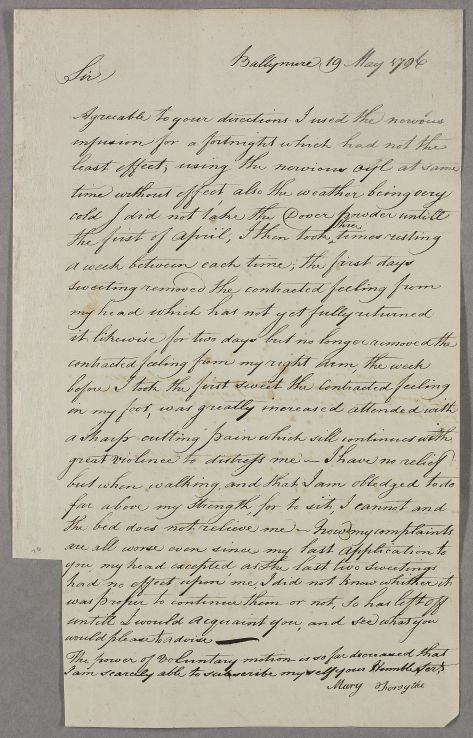 Ballynure 19 May 1796
Sir
Agreeable to your directions I used the nervous
infusion for a fortnight which had not the
least effect, using the nervious oyl at same
time without effect also the weather being very
cold I did not take the Dover powder untill
the first of April, I then took three times resting
a week between each time, the first days
sweeting removed the contracted feeling from
my head which has not yet fully returned
it likewise for two days but no longer removed the
contracted feeling from my right arm, the week
before I took the first sweet the contracted feeling
in my foot, was greatly increased attended with
a sharp cutting pain which still continues with
great violence to distress me — I have no relief
but when walking, and that I am obledged to do
far above my strength for to sit, I cannot and
the bed does not relieve me — my complaints
are all worse even since my last application to
you, my head excepted as the last two sweetings
had no effect upon me I did not know whether it
was proper to continue them or not, so has left off
untill I would acquaint you, and see what you
would please to advise
The power of voluntary motion is so far decreased that
I am scarcely able to subscribe myself your Humble Servt
Mary Forsythe